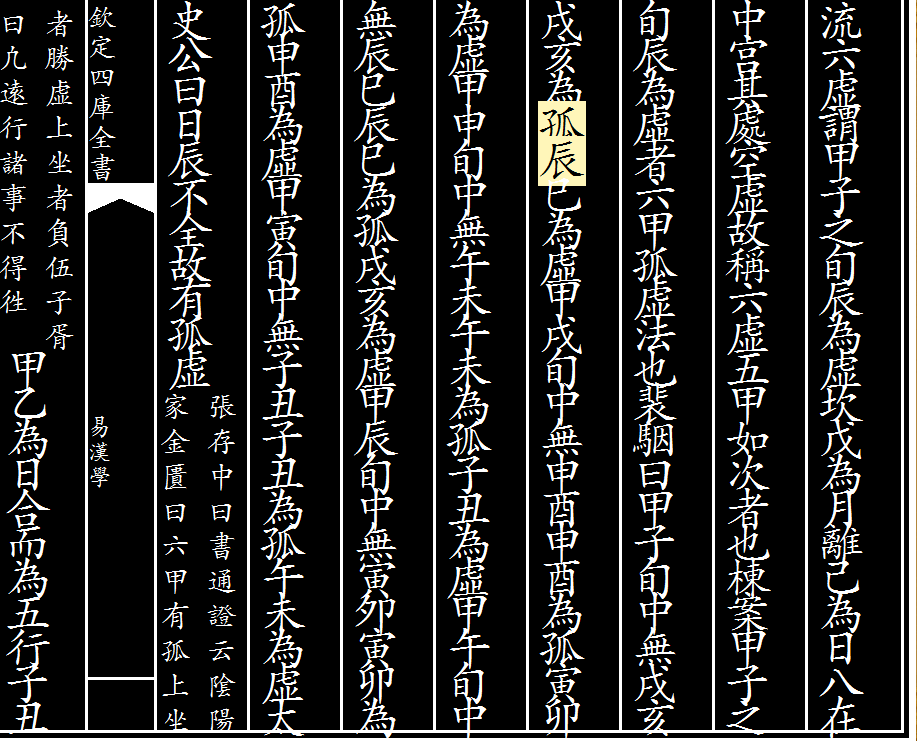 流六虛謂甲子之旬辰為虛坎戊為月離己為日八在
中宮其處空虛故稱六虛五甲如次者也棟案甲子之
旬辰為虛者六甲孤虛法也裴駰曰甲子旬中無戌亥
戌亥為孤辰巳為虛甲戌旬中無申酉申酉為孤寅卯
為虛甲申旬中無午未午未為孤子丑為虛甲午旬中
無辰巳辰巳為孤戌亥為虛甲辰旬中無寅夘寅卯為
孤申酉為虛甲寅旬中無子丑子丑為孤午未為虛太
史公曰日辰不全故有孤虛
張存中曰書通證云陰陽
家金匱曰六甲有孤上坐
欽定四庫全書
易漢學
者勝虛上坐者負伍子胥
曰凢遠行諸事不得徃
甲乙為日合而為五行子丑